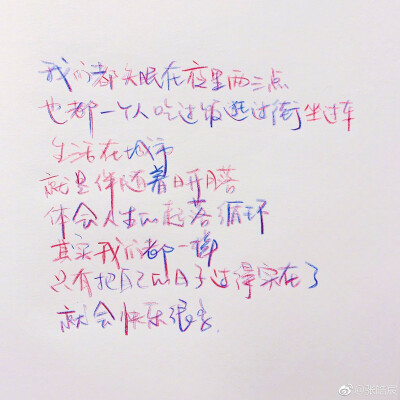 我们都失眠在夜里两三点
也都一个人吃过饭逛过街坐过车
生活在城市
就是伴随着日开月落
体会人生的起落循环
其实我们都一样
只有把自己的日子过得实在了
就会快乐很多